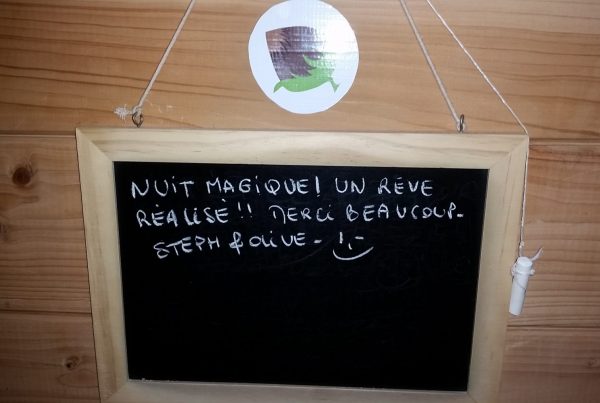 NUIT MAGIQUE! UN RÊVE
RÉALISÉ!! MERCI BEAUCOUP.
STEPH & OLIVE - !,-